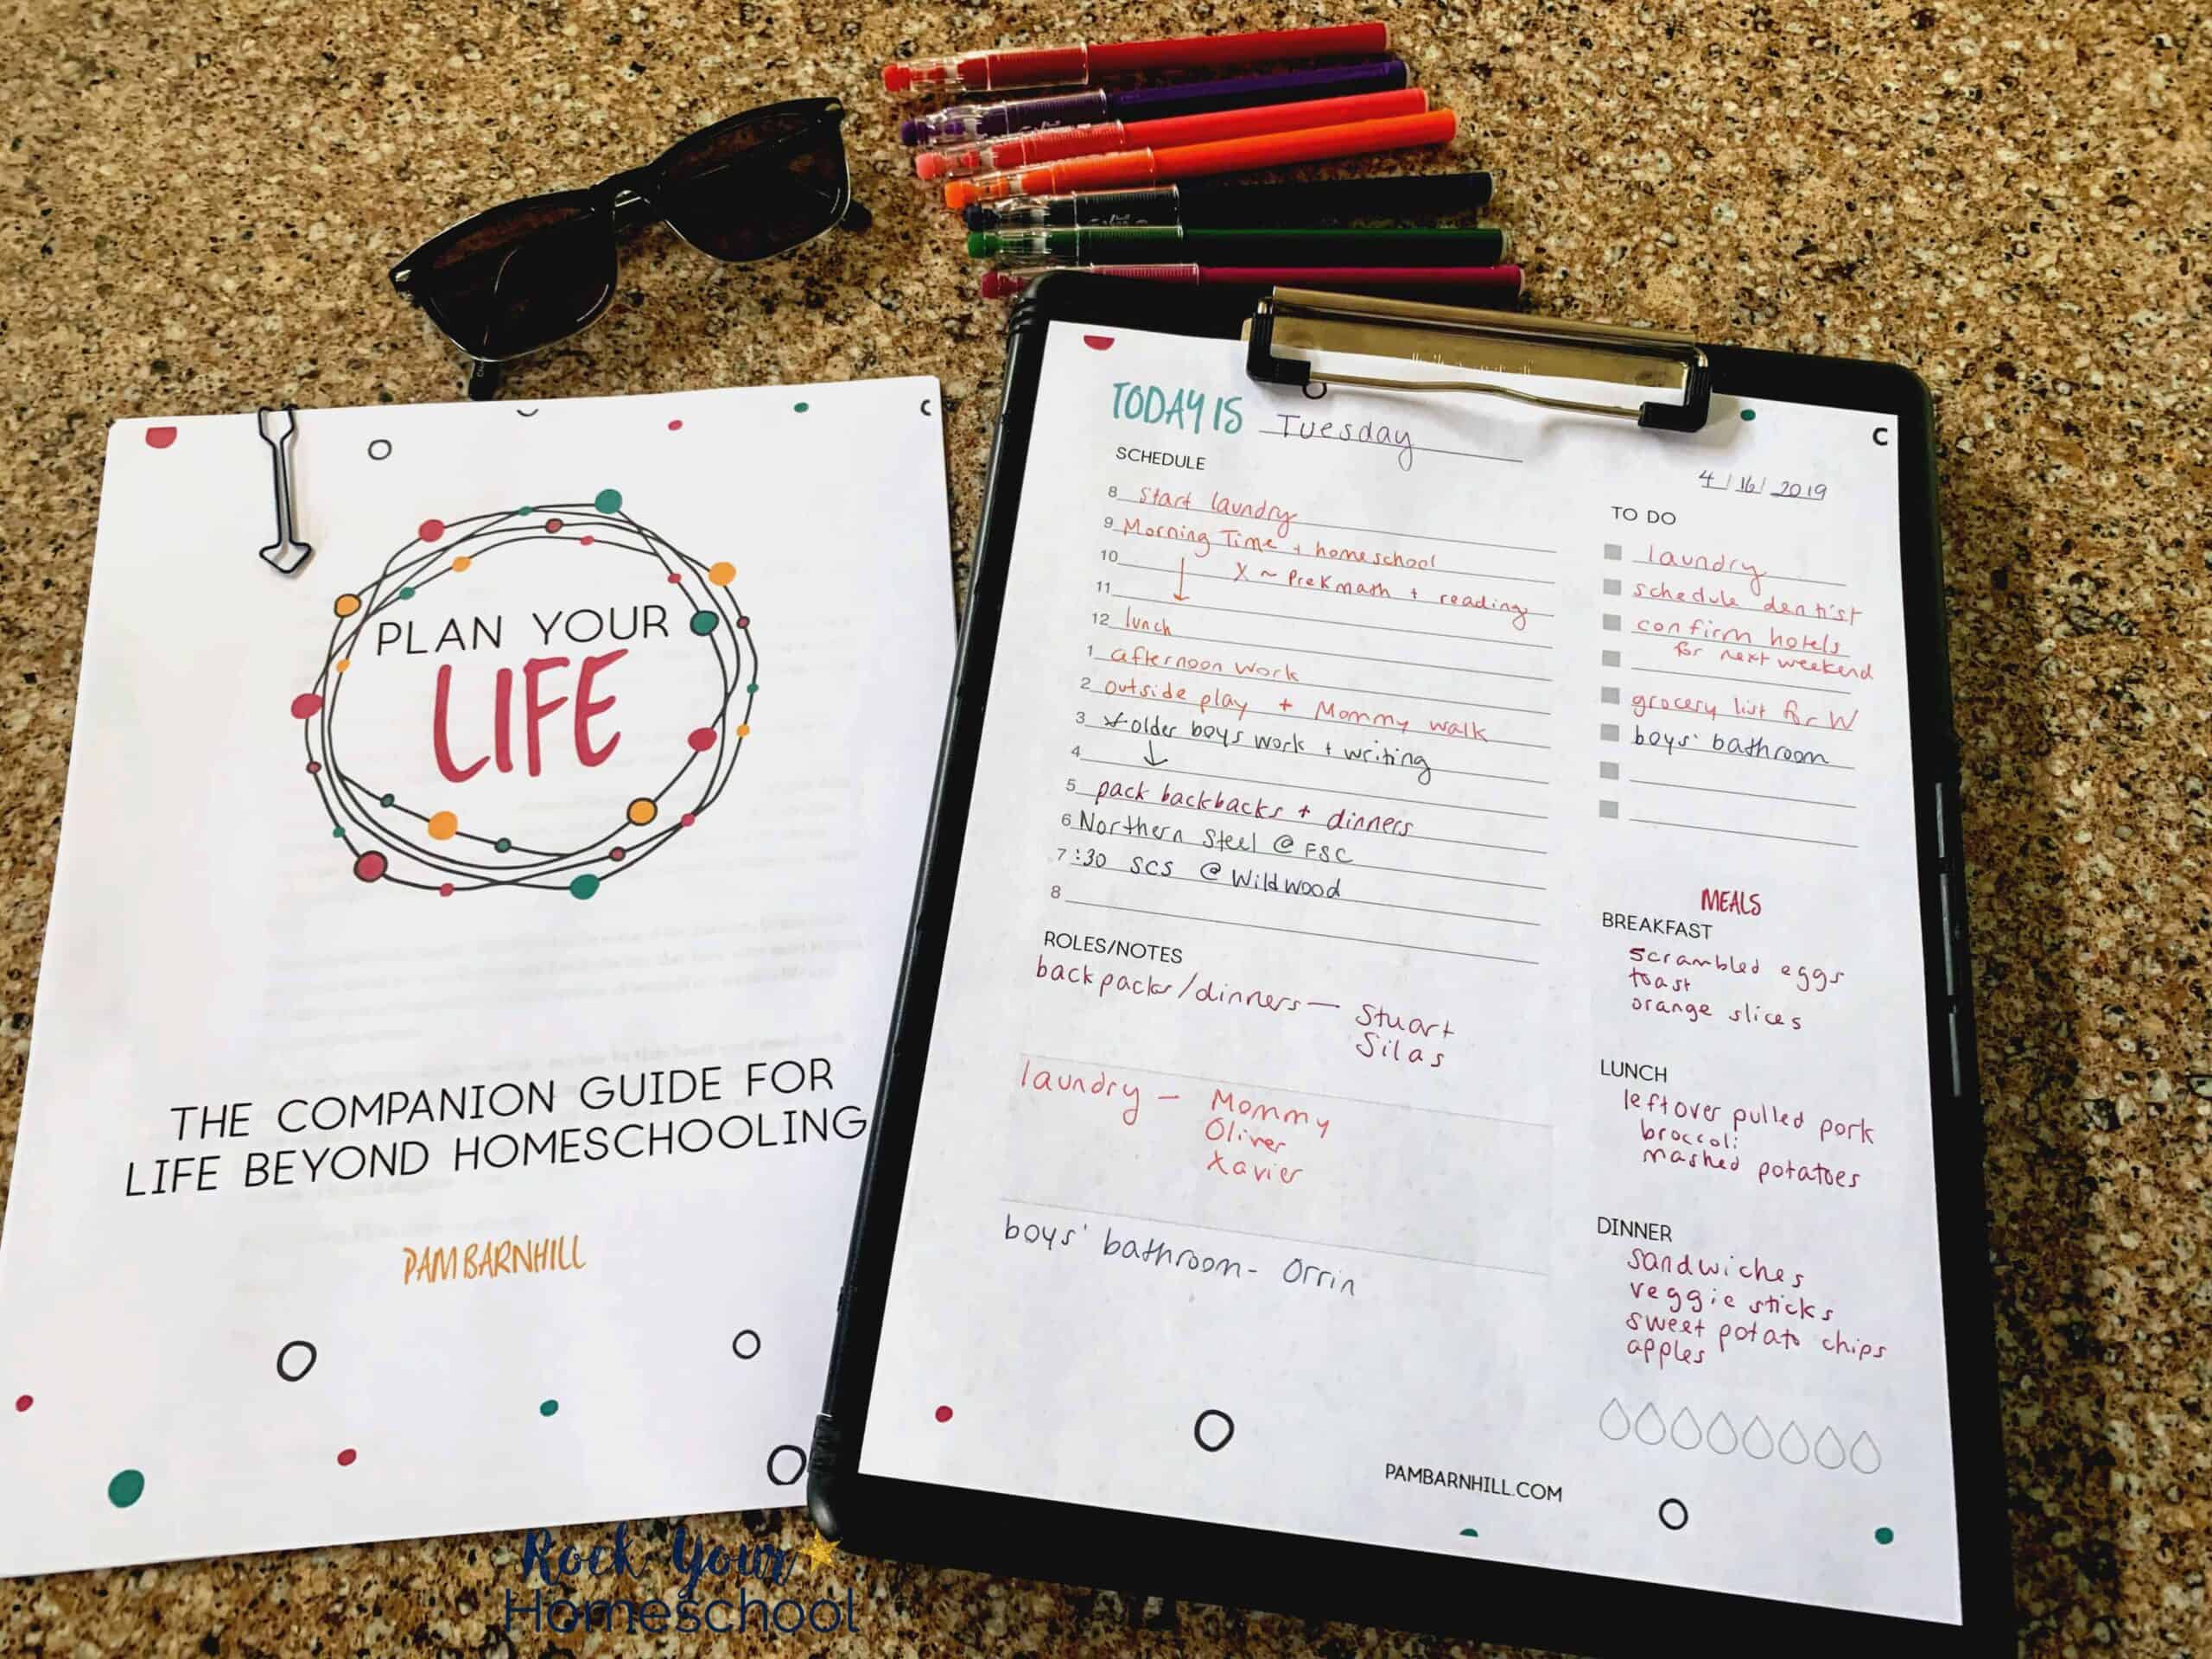 PLAN YOUR
LIFE
THE COMPANION GUIDE FOR
LIFE BEYOND HOMESCHOOLING
PAM BARNHILL
C
TODAY IS Tuesday
C
4/16/2019
SCHEDULE
8 Start laundry
9 Morning Time + homeschool
10 X ~ PreK math + reading
11
12 lunch
1 afternoon work
2 outside play + Mommy walk
3 * older boys work + writing
4
5 pack backbacks + dinners
6 Northern Steel @ FSC
7:30 SCS @ Wildwood
8
ROLES/NOTES
backpacks/dinners — Stuart
Silas
laundry — Mommy
Oliver
Xavier
boys' bathroom - Orrin
TO DO
laundry
schedule dentist
confirm hotels
for next weekend
grocery list for W
boys' bathroom
MEALS
BREAKFAST
scrambled eggs
toast
orange slices
LUNCH
leftover pulled pork
broccoli
mashed potatoes
DINNER
sandwiches
veggie sticks
sweet potato chips
apples
PAMBARNHILL.COM
Rock Your
Homeschool